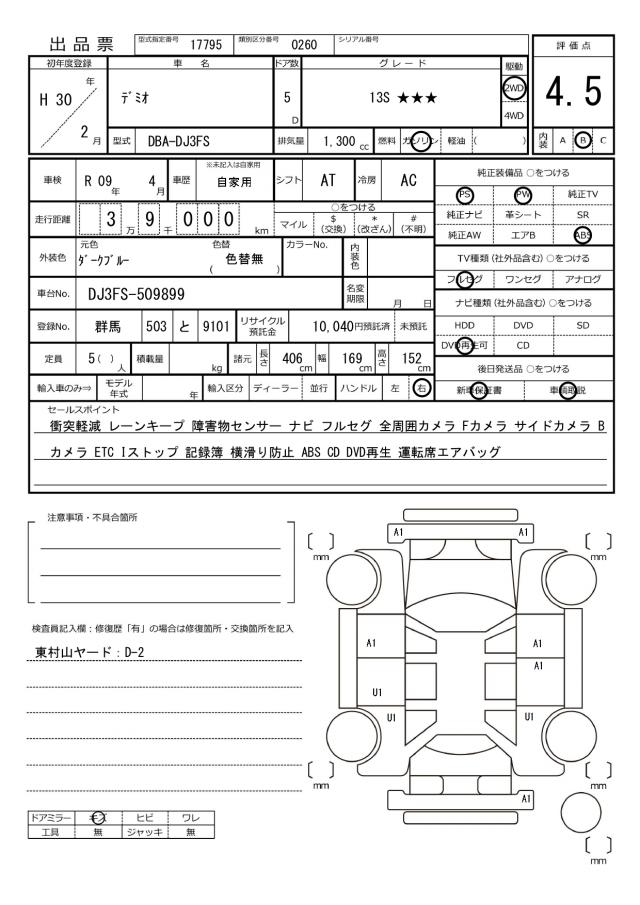 出品票 型式指定番号 17795 類別区分番号 0260 シリアル番号
評価点
4.5
初年度登録 車名 ドア数 グレード 駆動
H 30 年 デミオ 5 D 13S ★★★ 2WD
4WD
2 月 型式 DBA-DJ3FS 排気量 1,300 cc 燃料 ガソリン 軽油 ( ) 内装 A B C
車検 R 09 年 4 月 車歴 ※未記入は自家用 自家用 シフト AT 冷房 AC
走行距離 3 万 9 千 0 0 0 km ○をつける
マイル $ (交換) * (改ざん) # (不明)
外装色 元色 ダークブルー 色替 ( 色替無 ) カラーNo. 内装色
車台No. DJ3FS-509899 名変期限 月 日
登録No. 群馬 503 と 9101 リサイクル預託金 10,040円預託済 未預託
定員 5 ( ) 人 積載量 kg 諸元 長さ 406 cm 幅 169 cm 高さ 152 cm
輸入車のみ⇒ モデル年式 年 輸入区分 ディーラー 並行 ハンドル 左 右
純正装備品 ○をつける
PS PW 純正TV
純正ナビ 革シート SR
純正AW エアB ABS
TV種類(社外品含む) ○をつける
フルセグ ワンセグ アナログ
ナビ種類(社外品含む) ○をつける
HDD DVD SD
DVD再生可 CD
後日発送品 ○をつける
新車保証書 車輌取説
セールスポイント
衝突軽減 レーンキープ 障害物センサー ナビ フルセグ 全周囲カメラ Fカメラ サイドカメラ B
カメラ ETC Iストップ 記録簿 横滑り防止 ABS CD DVD再生 運転席エアバッグ
注意事項・不具合箇所
検査員記入欄：修復歴「有」の場合は修復箇所・交換箇所を記入
東村山ヤード：D-2
ドアミラー キズ ヒビ ワレ
工具 無 ジャッキ 無
A1 A1
mm mm
A1 A1
A1
U1
U1 U1
mm mm
A1
mm